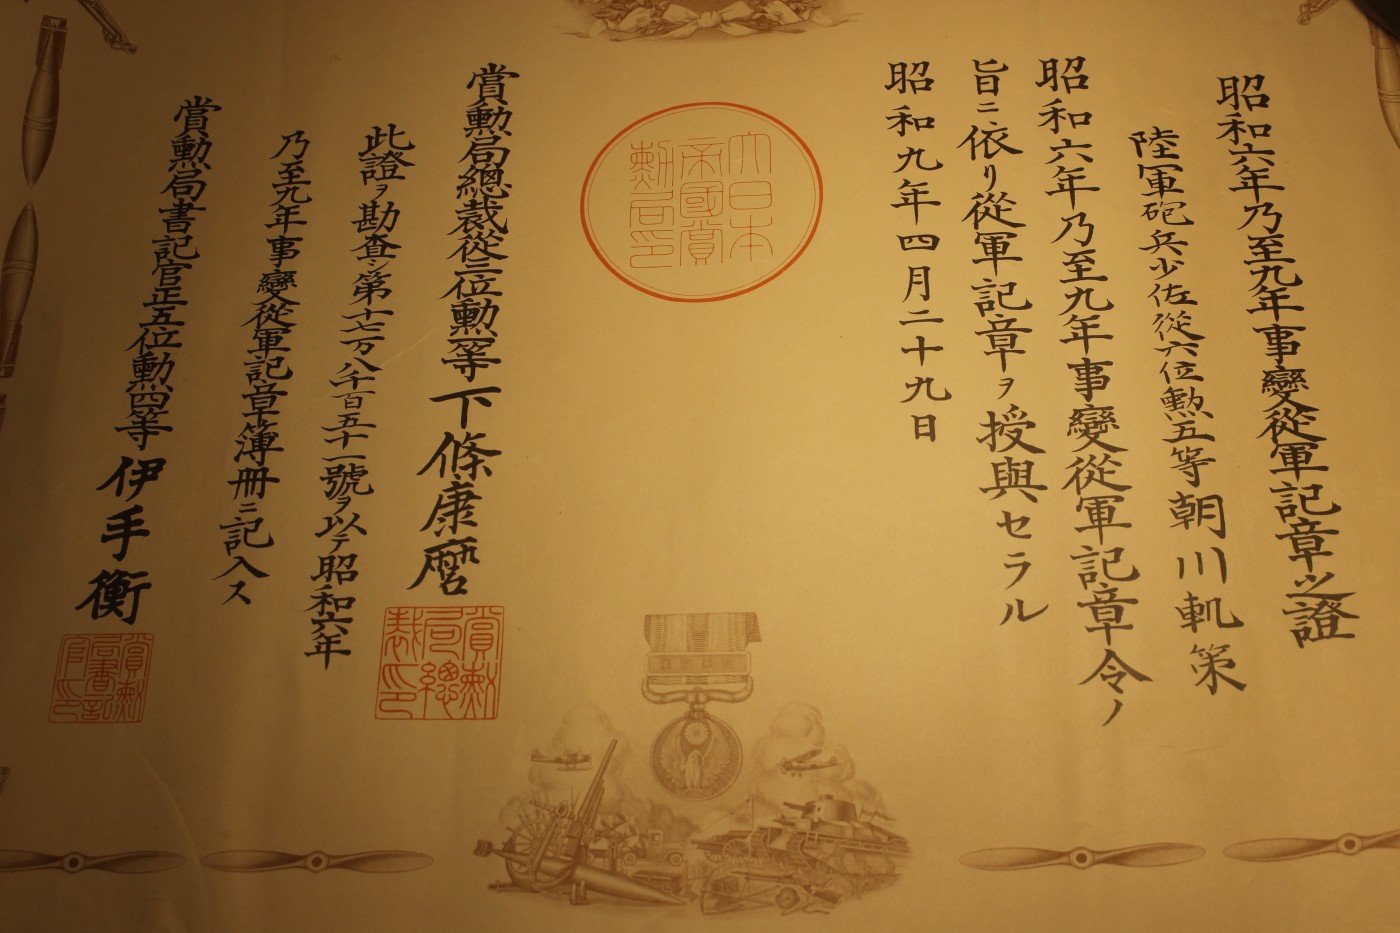 昭和六年乃至九年事變從軍記章之證
陸軍砲兵少佐從六位勲五等朝川軏策
昭和六年乃至九年事變從軍記章令ノ
旨ニ依リ從軍記章ヲ授與セラル
昭和九年四月二十九日
大日本
帝國賞
勲局印
賞勲局總裁從三位勲一等下條康麿
賞勲
局總
裁印
此證ヲ勘査シ第十七万八千百五十一號ヲ以テ昭和六年
乃至九年事變從軍記章簿冊ニ記入ス
賞勲局書記官正五位勲四等伊手衡
賞勲
局書記
官印